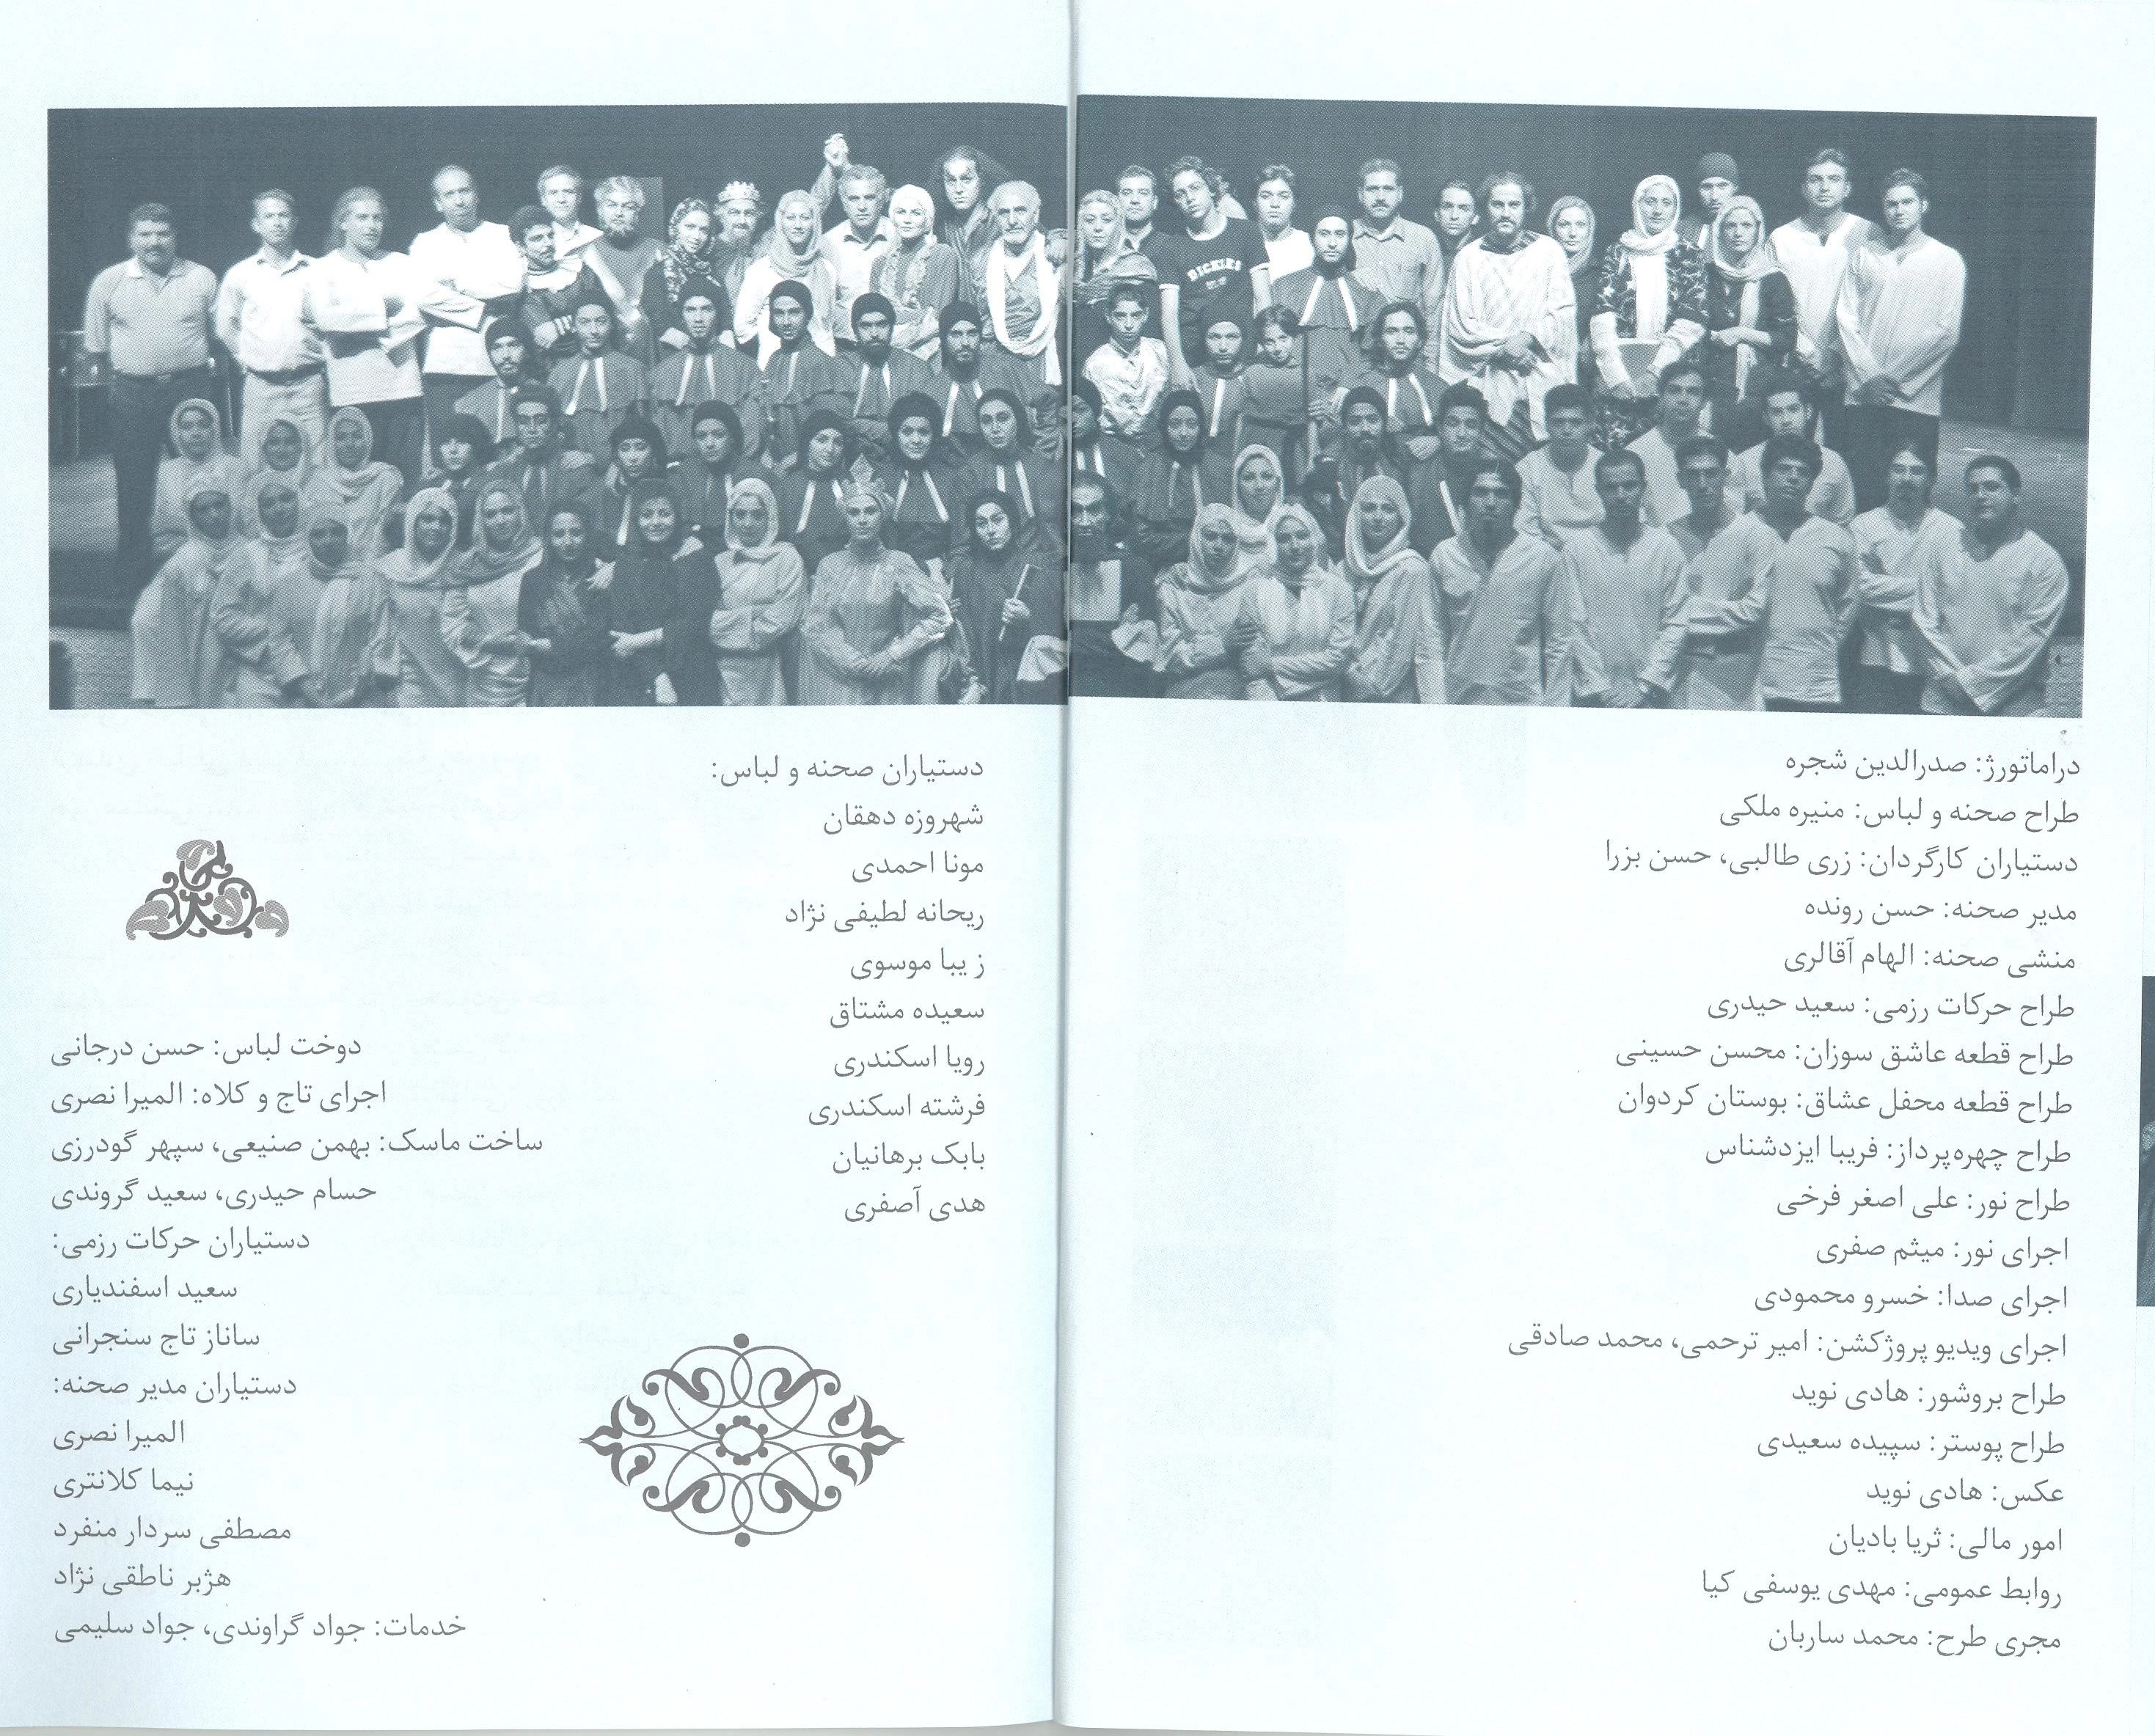 DICKIES
دراماتورژ: صدرالدین شجره
طراح صحنه و لباس: منیره ملکی
دستیاران کارگردان: زری طالبی، حسن بزرا
مدیر صحنه: حسن رونده
منشی صحنه: الهام آقالری
طراح حرکات رزمی: سعید حیدری
طراح قطعه عاشق سوزان: محسن حسینی
طراح قطعه محفل عشاق: بوستان کردوان
طراح چهره‌پرداز: فریبا ایزدشناس
طراح نور: علی اصغر فرخی
اجرای نور: میثم صفری
اجرای صدا: خسرو محمودی
اجرای ویدیو پروژکشن: امیر ترحمی، محمد صادقی
طراح بروشور: هادی نوید
طراح پوستر: سپیده سعیدی
عکس: هادی نوید
امور مالی: ثریا بادیان
روابط عمومی: مهدی یوسفی کیا
مجری طرح: محمد ساربان
دستیاران صحنه و لباس:
شهروزه دهقان
مونا احمدی
ریحانه لطیفی نژاد
ز یبا موسوی
سعیده مشتاق
رویا اسکندری
فرشته اسکندری
بابک برهانیان
هدی آصفری
دوخت لباس: حسن درجانی
اجرای تاج و کلاه: المیرا نصری
ساخت ماسک: بهمن صنیعی، سپهر گودرزی
حسام حیدری، سعید گروندی
دستیاران حرکات رزمی:
سعید اسفندیاری
ساناز تاج سنجرانی
دستیاران مدیر صحنه:
المیرا نصری
نیما کلانتری
مصطفی سردار منفرد
هژبر ناطقی نژاد
خدمات: جواد گراوندی، جواد سلیمی